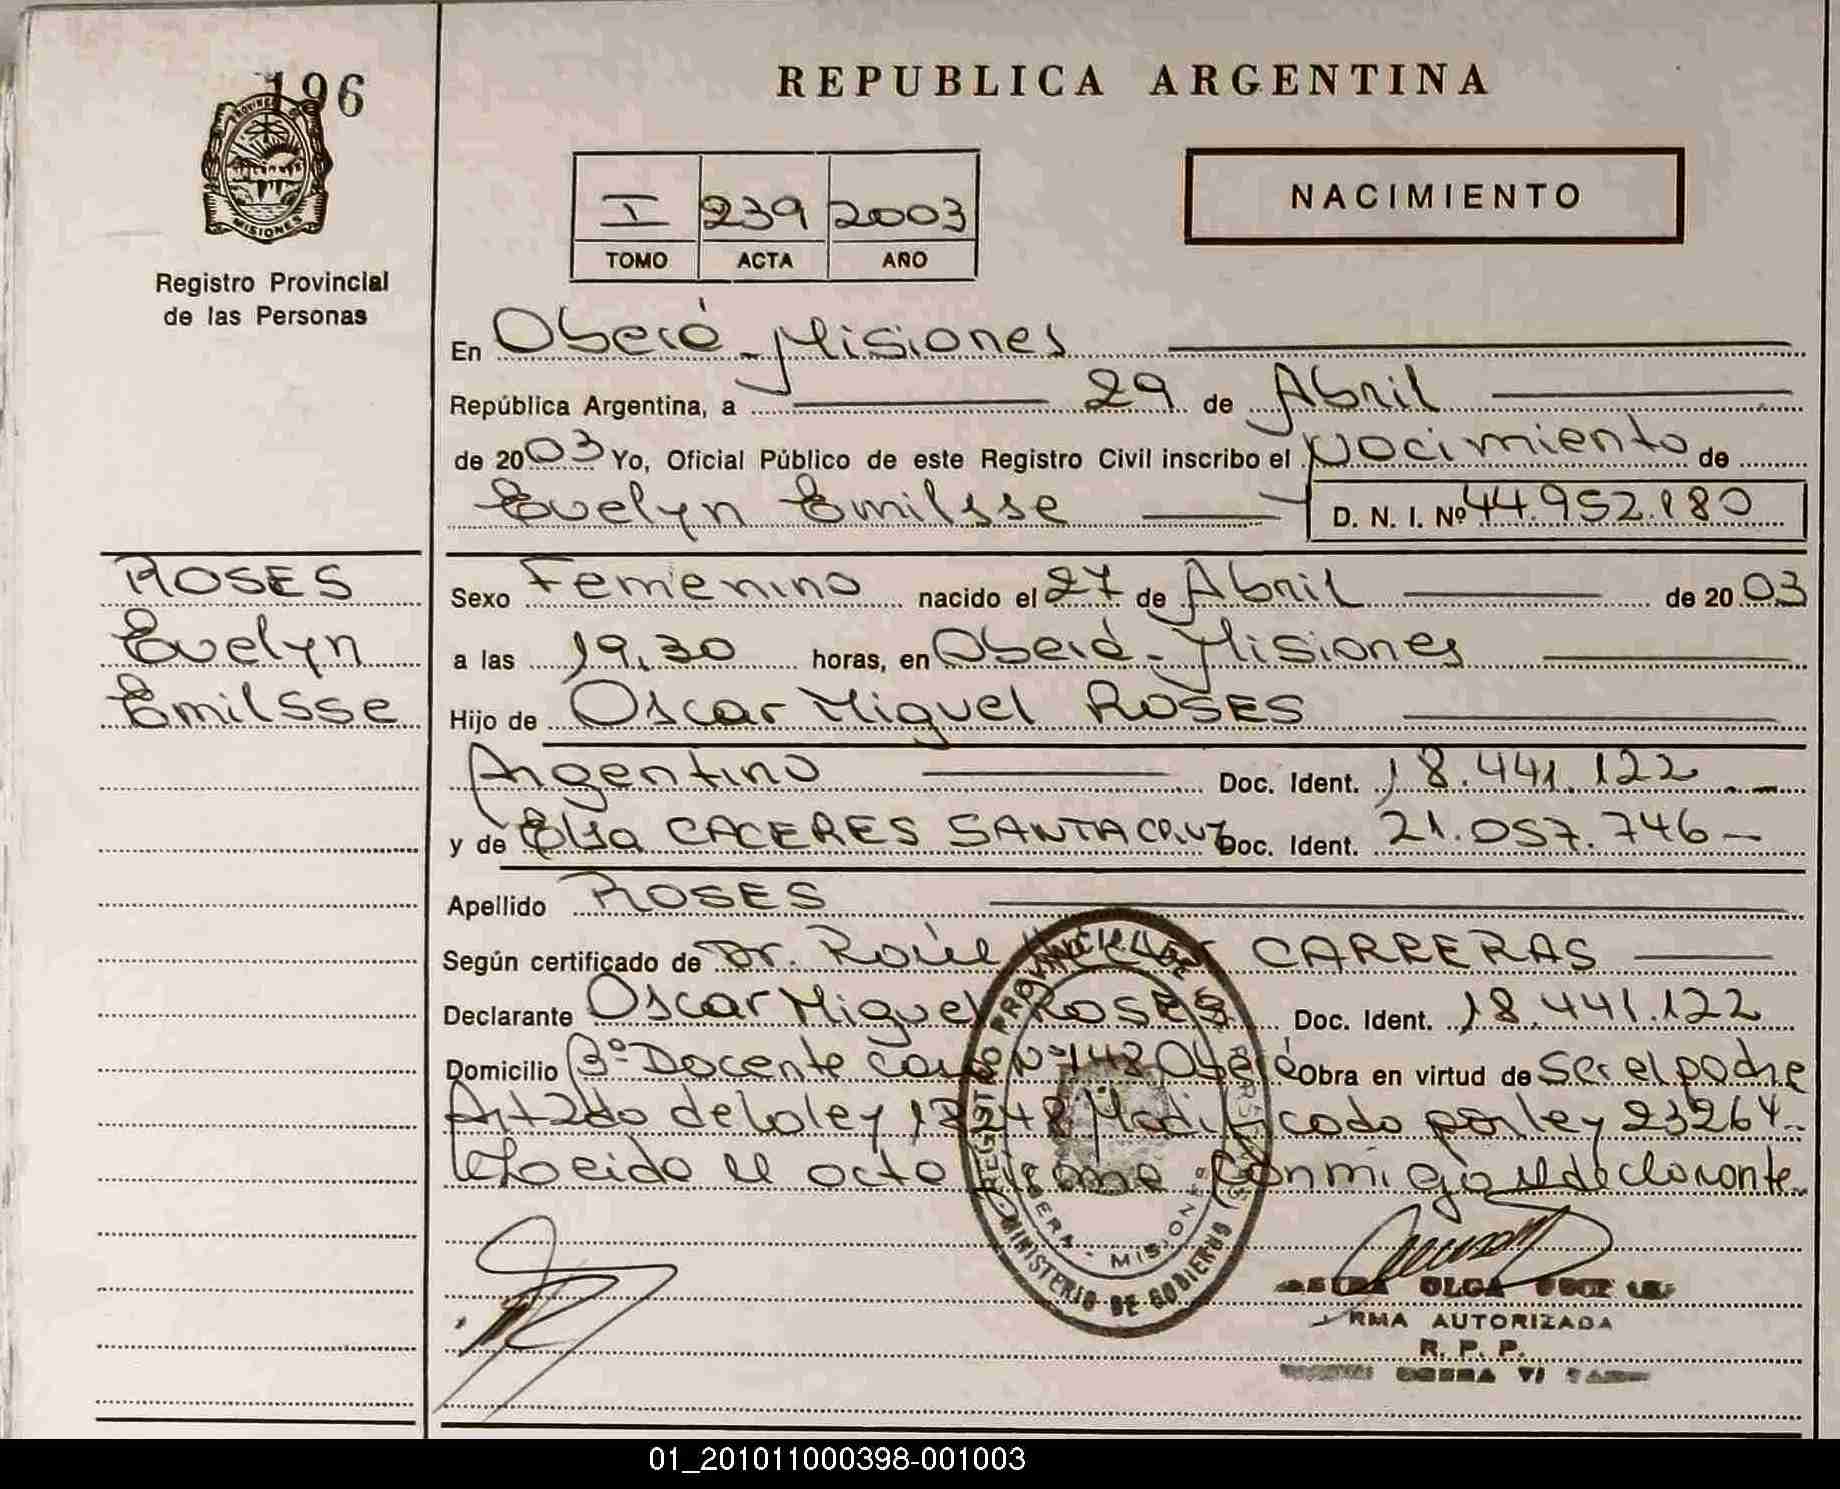 196
PROVINCIA
MISIONES
Registro Provincial
de las Personas
ROSES
Evelyn
Emilsse
REPUBLICA ARGENTINA
I 239 2003
TOMO ACTA AÑO
NACIMIENTO
En Oberá - Misiones
República Argentina, a 29 de Abril
de 2003 Yo, Oficial Público de este Registro Civil inscribo el Nacimiento de
Evelyn Emilsse D. N. I. Nº 44.952.180
Sexo Femenino nacido el 27 de Abril de 2003
a las 19.30 horas, en Oberá - Misiones
Hijo de Oscar Miguel ROSES
Argentino Doc. Ident. 18.441.122
y de Elsa CACERES SANTACRUZ Doc. Ident. 21.057.746 -
Apellido ROSES
Según certificado de Dr. Raúl CARRERAS
Declarante Oscar Miguel ROSES Doc. Ident. 18.441.122
Domicilio Bº Docente Casa Nº 142 Oberá Obra en virtud de Ser el padre
Art 2do de la ley 18248 Modificado por ley 23264.
Leído el acta firma conmigo el declarante.
REGISTRO PROVINCIAL DE LAS PERSONAS
OBERA - MISIONES
MINISTERIO DE GOBIERNO
OLGA
FIRMA AUTORIZADA
R. P. P.
01_201011000398-001003